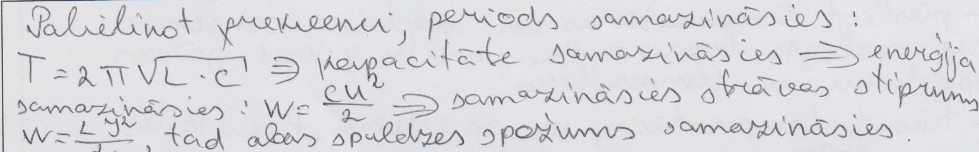 Palielinot frekvenci, periods samazināsies:
T = 2π√L·C ⇒ kapacitāte samazināsies ⇒ enerģija
samazināsies: W = CU²/2 ⇒ samazināsies strāvas stiprums
W = L J²/2, tad abas spuldzes spožums samazināsies.